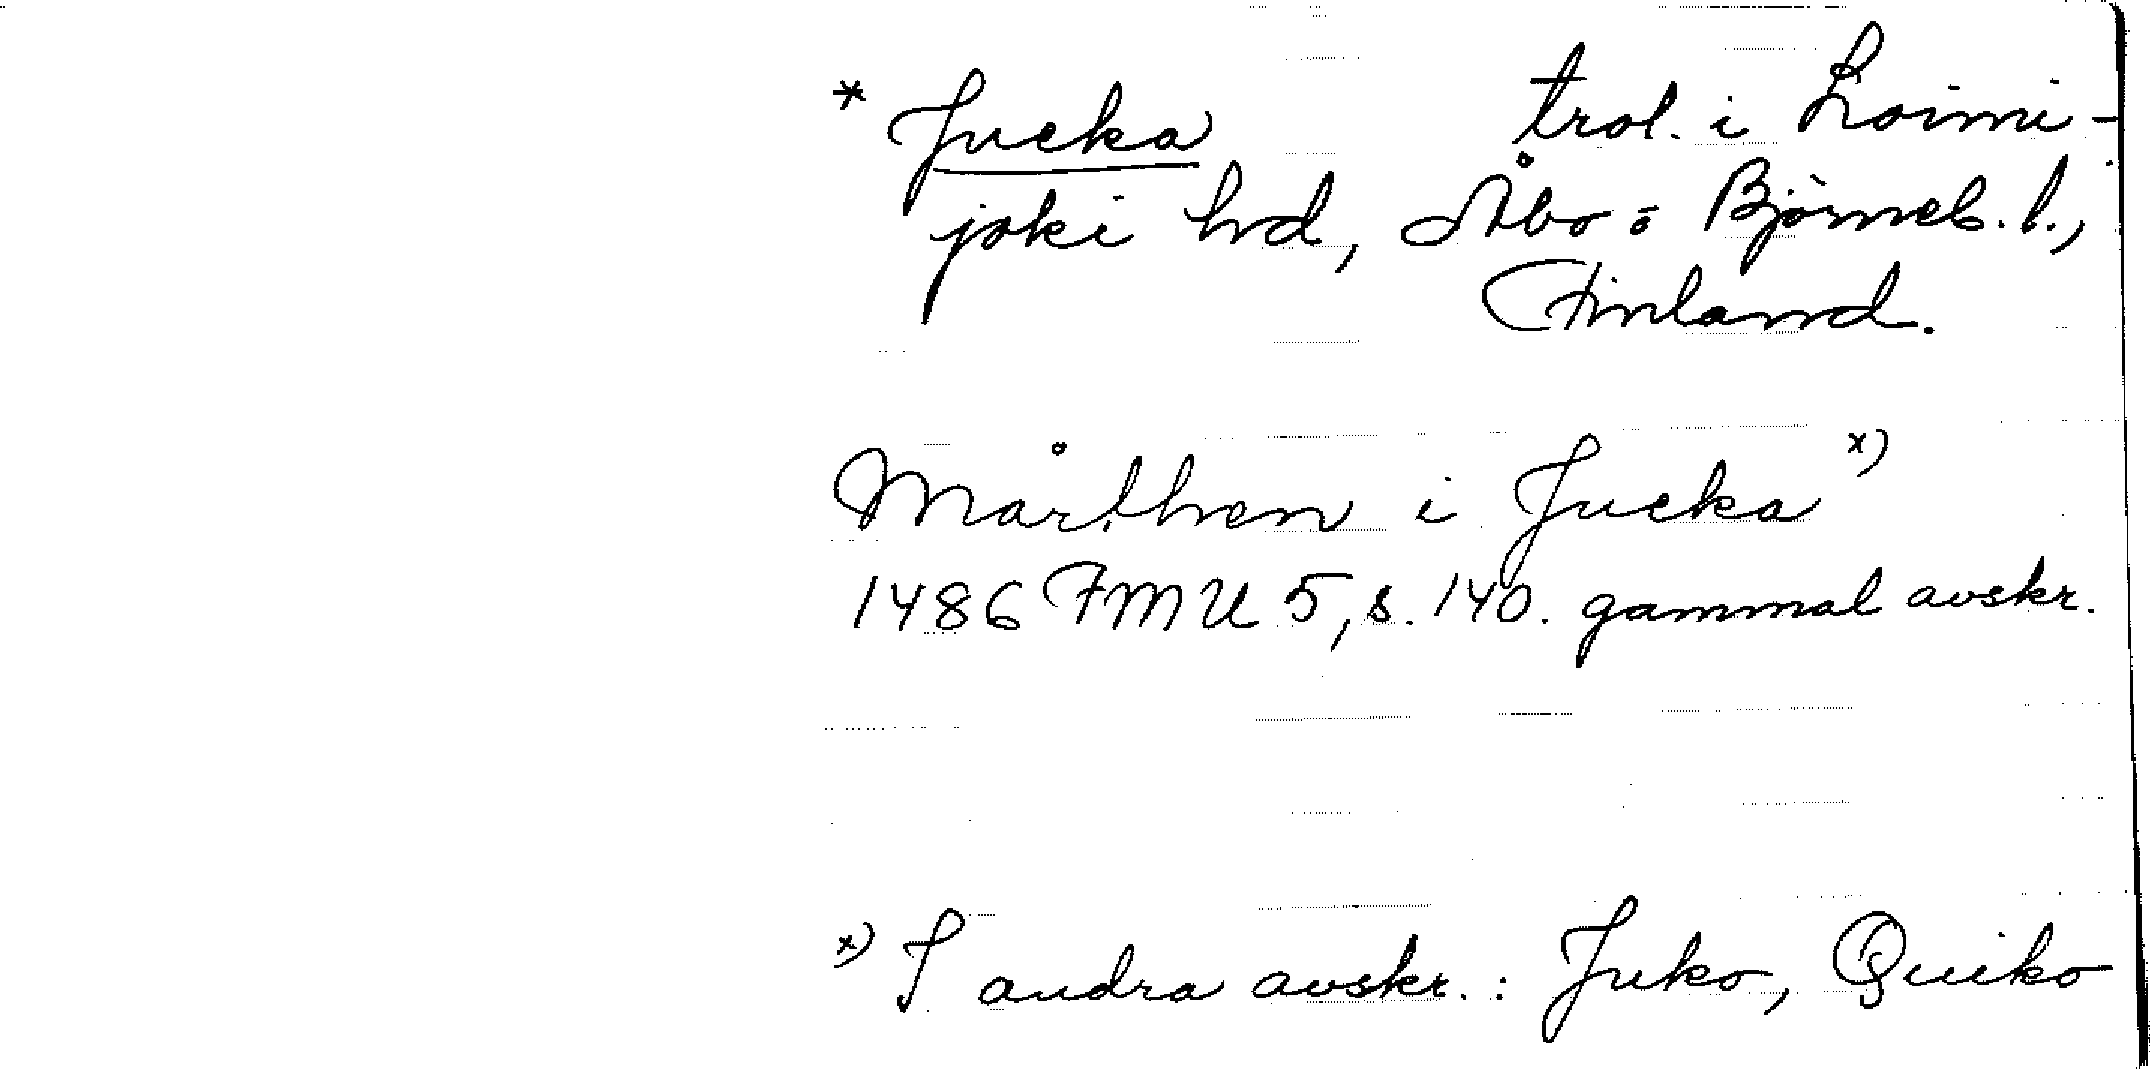 * Jucka trol. i Loimi-
joki hrd, Åbo o Björneb. l.,
Finland.
Mårthen i Jucka x)
1486 FMU 5, s. 140. gammal avskr.
x) I andra avskr.: Juko, Quiko